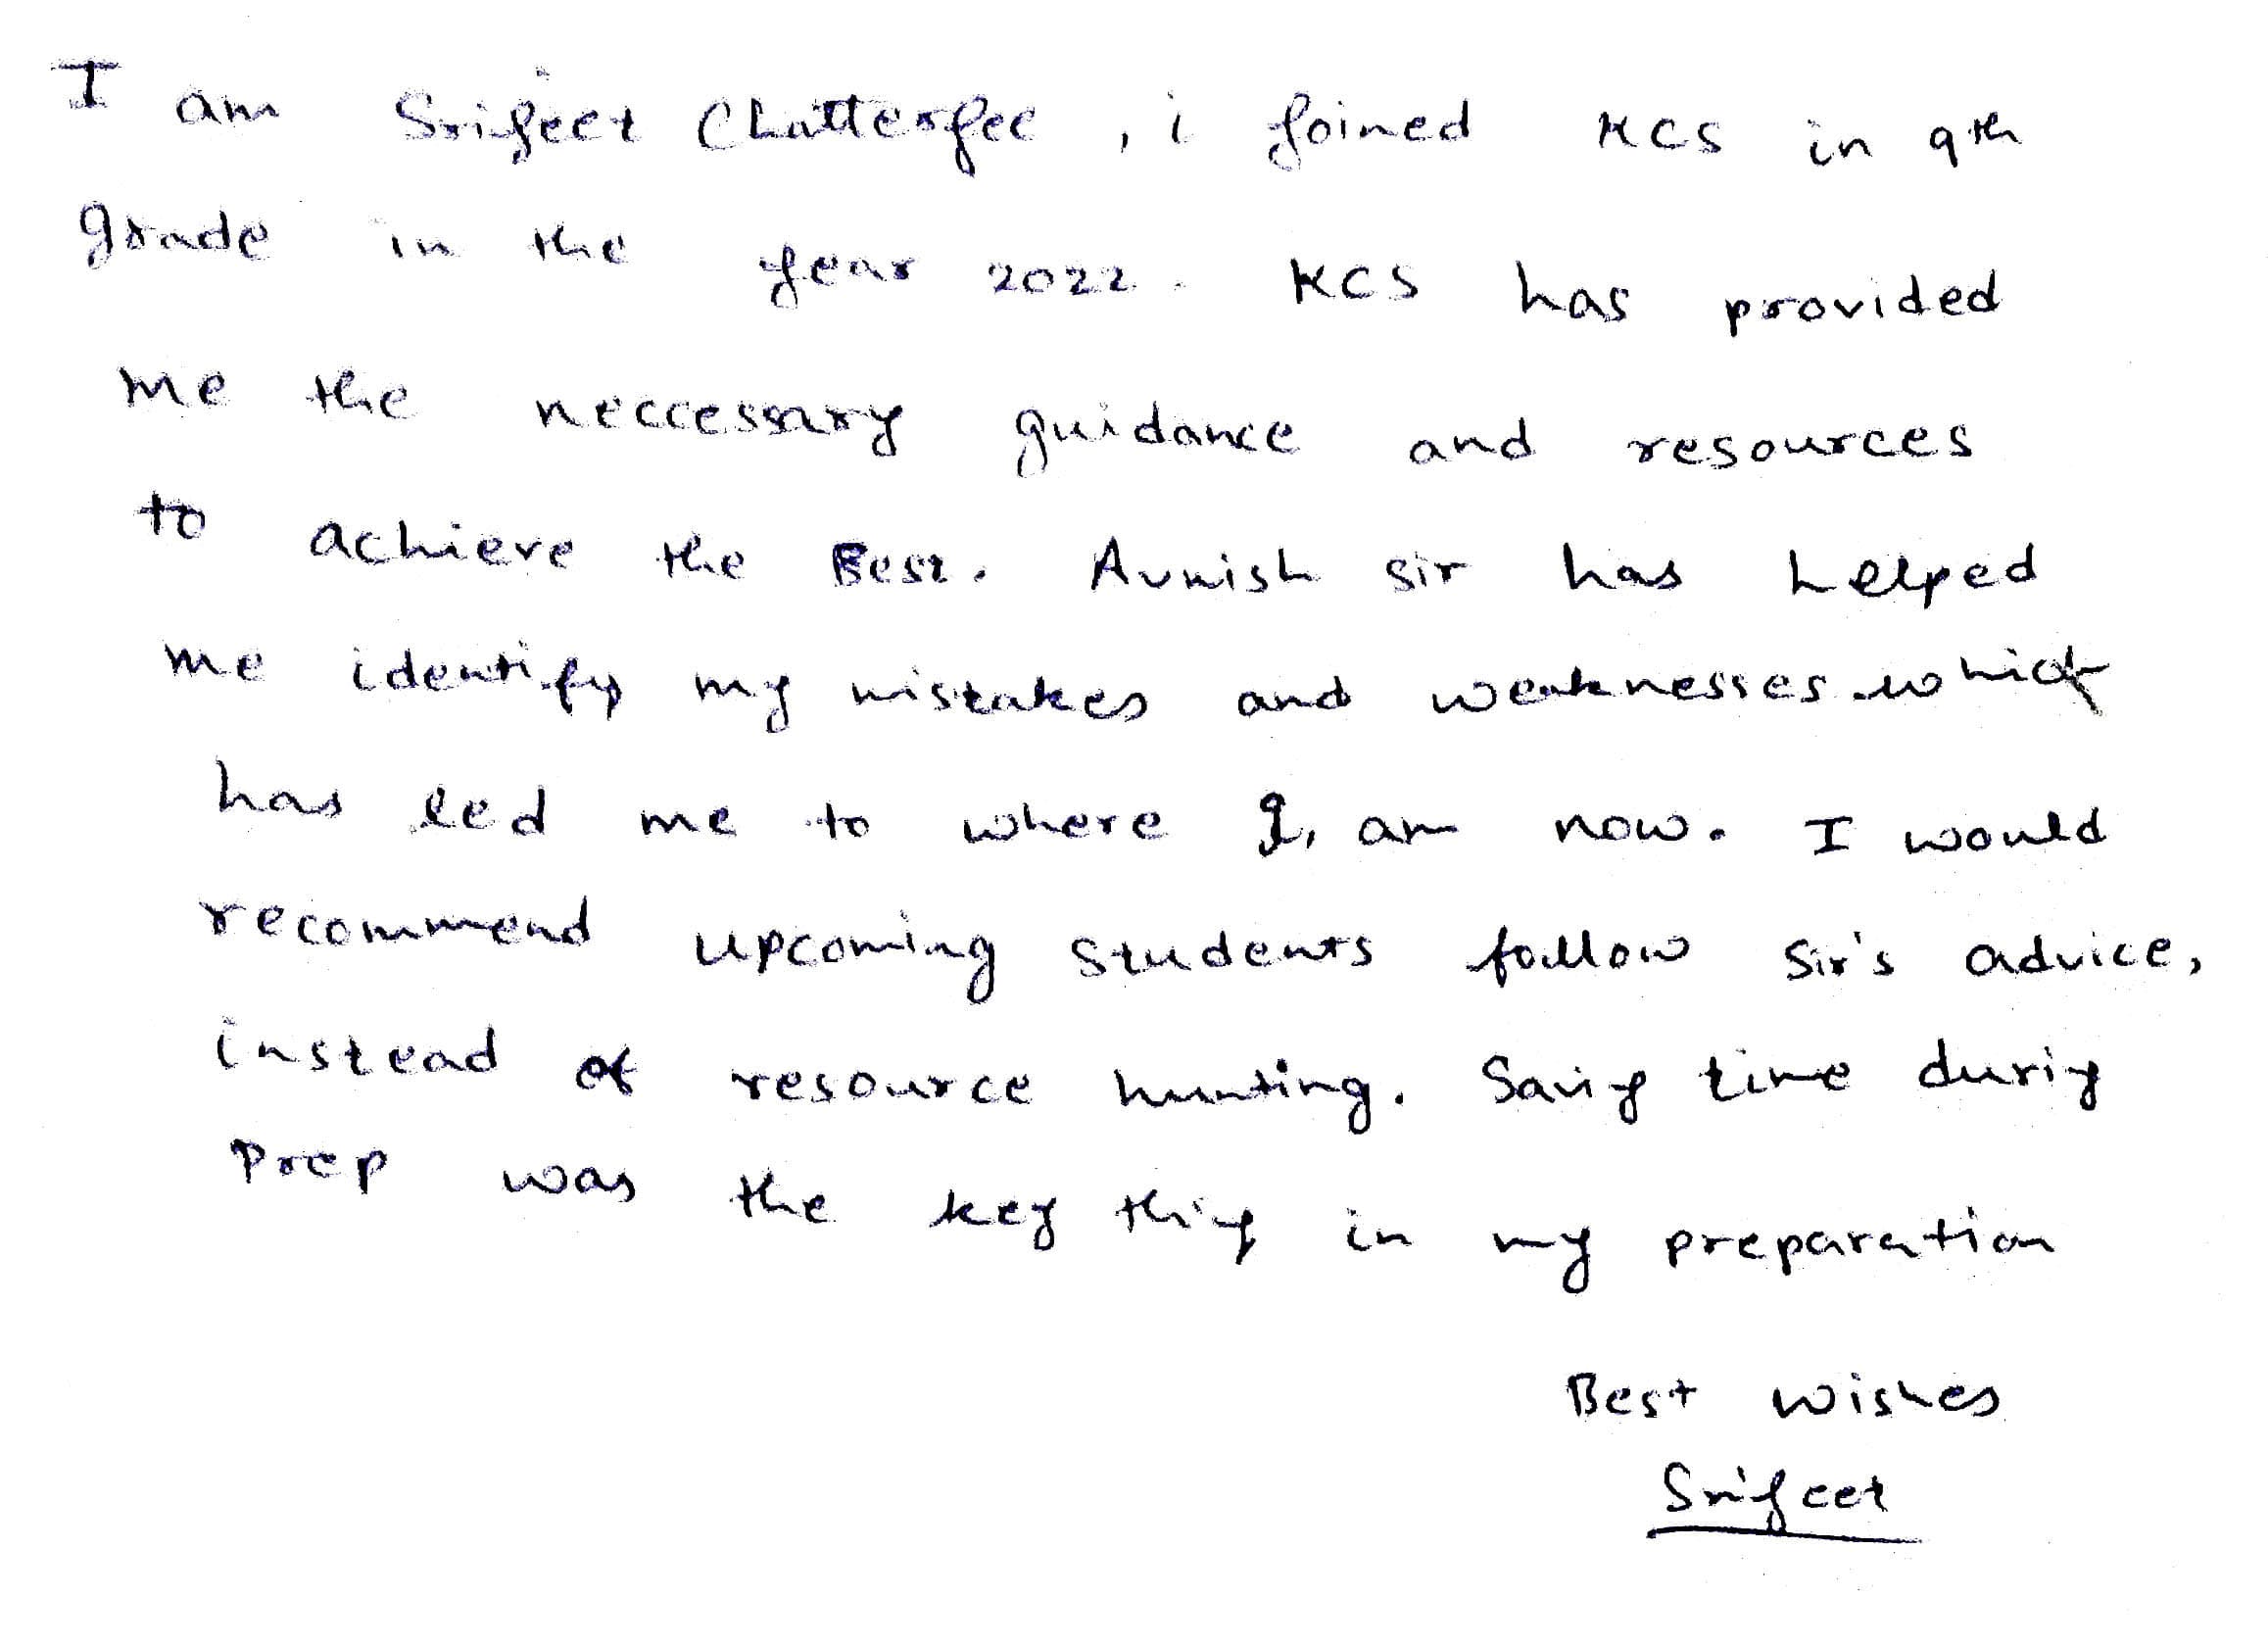 I am Srijeet Chatterjee, i joined KCS in 9th
grade in the year 2022. KCS has provided
me the neccessary guidance and resources
to achieve the Best. Avnish sir has helped
me identify my mistakes and weaknesses which
has led me to where I, am now. I would
recommend upcoming students follow sir's advice,
instead of resource hunting. Saving time during
prep was the key thing in my preparation
Best wishes
Srijeet